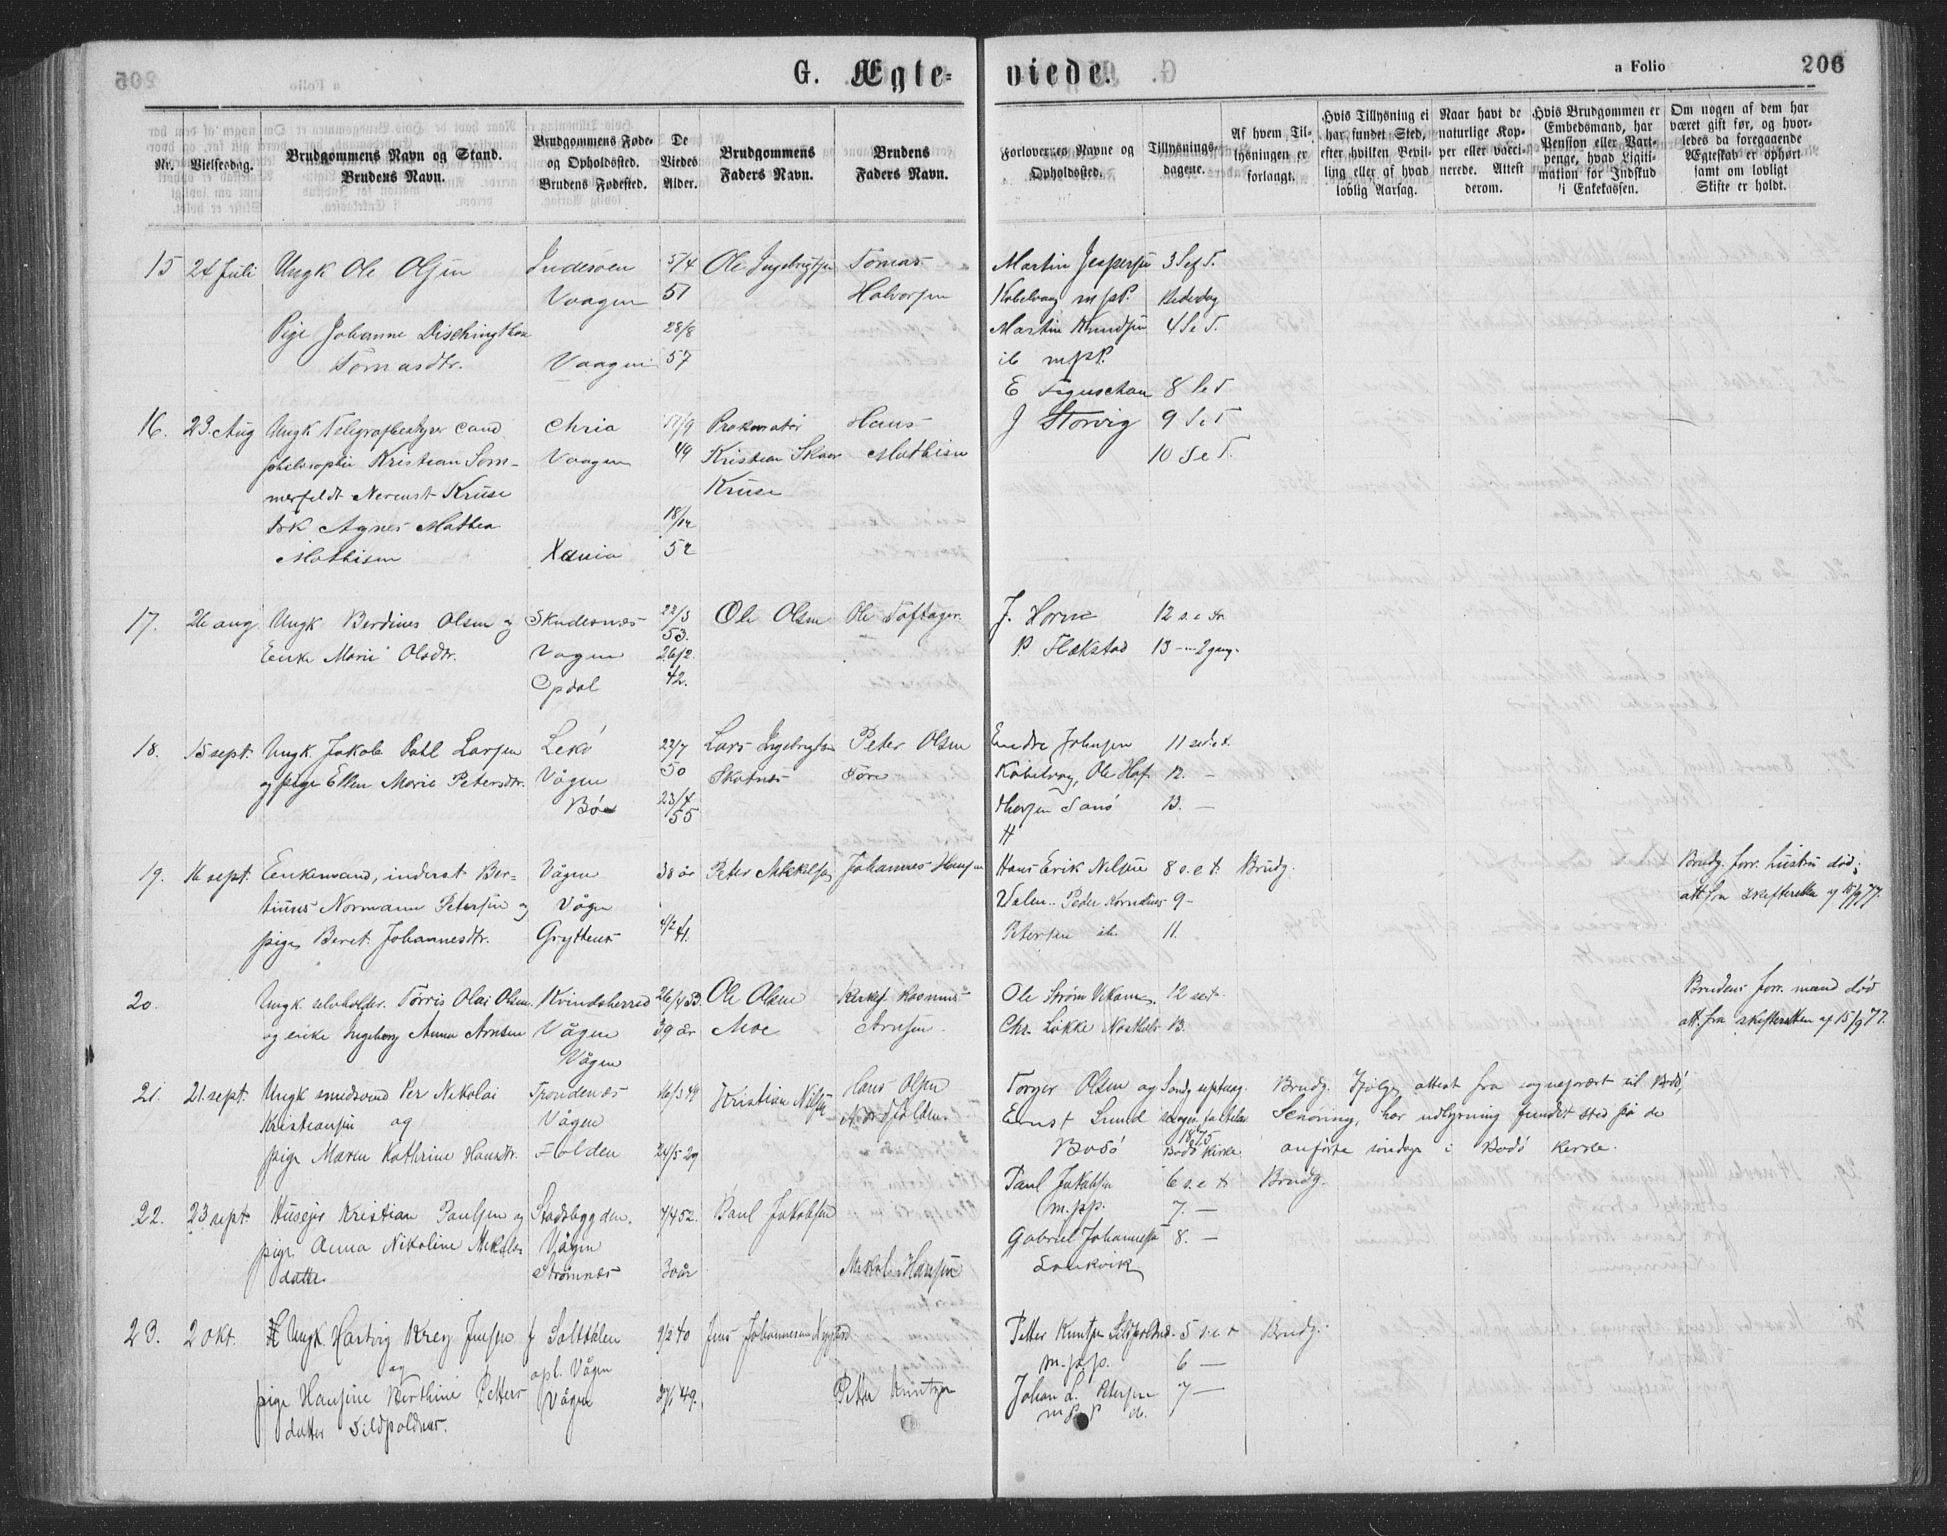 G. Ægte=
viede.
a Folio 206
Nr.
Vielsesdag.
Brudgommens Navn og Stand.
Brudens Navn.
Brudgommens Føde-
og Opholdssted.
Brudens Fødested.
De
Viedes
Alder.
Brudgommens
Faders Navn.
Brudens
Faders Navn.
Forlovernes Navne og
Opholdssted.
Tillysnings-
dagene.
Af hvem Til-
lysningen er
forlangt.
Hvis Tillysning ei
har fundet Sted,
efter hvilken Bevil-
ling eller af hvad
lovlig Aarsag.
Naar havt de
naturlige Kop-
per eller vacci-
nerede. Attest
derom.
Hvis Brudgommen er
Embedsmand, har
Pension eller Vart-
penge, hvad Ligiti-
mation for Indskud
i Enkekassen.
Om nogen af dem har
været gift før, og hvor-
ledes da foregaaende
Ægteskab er ophørt
samt om lovligt
Skifte er holdt.
15 24 Juli Ungk Ole Olsen Inderøen 5/4 Ole Ingebrigtsen Tomas Martin Jespersen 3 S e T.
Vaagen 51 Halvorsen Kabelvaag mpP. Bededag
Pige Johanne 28/8 Martin Knudsen 4 S e T.
Tomasdtr. Vaagen 57 ib mpP.
E 8 S e T
J Storvig 9 S e T
10 S e T.
16. 23. Aug Ungk Telegrafbestyrer cand. Chria 17/9 Prokurator Hans
philosophie Kristian Som- Vaagen 49 Kristian Skaar Mathisen
merfeldt Nerenst Kruse Kruse
frk Agnes Mathea 18/12
Mathisen Xania 52
17. 26 aug Ungk Berdines Olsen og Skudesnes 22/3 Ole Olsen Ole J. Horn 12 s. e. tr.
53.
Enke Marie Olsdtr. Vagen 26/2 P. Flakstad 13 — 2 gang.
Opdal 42.
18. 15 sept. Ungk. Jakob Dahl Larsen Lekø 22/7 Lars Ingebrigtsen Peter Olsen Endre Johnsen 11 s.e.t.
og pige Ellen Marie Petersdtr. Vågen 50 Skotnes Føre Kabelvag, Ole Hof. 12. —
Bø 23/4 13. —
55
19. 16 sept. Enkemand, inderst Ber- Vågen 38 år Peter Mekelsen Johannes Hansen Hans Erik Nilsen 8 s.e.t. Brudg. Brudg. forr. hustru død;
tinus Normann Petersen og Vågen Valen.. Peder Kornelius 9 — att. fra skifteretten af 15/9 77.
pige Beret Johannesdtr. Gryttens 4/2 41. Petersen ib. 11.
20. Ungk selvholder Tørris Olai Olsen Kvindsherred 26/4 53. Ole Olsen Kirkef. Rasmus Ole Strøm 12 s.e.t. Brudens forr. mand død
og enke Ingeborg Anna Arnsen Vågen 39 år Moe Arnsen Chr. Løkke 13. att. fra skifteretten af 15/9 77.
Vågen
21. 21. sept. Ungk smedsvend Per Nikolai Trondenæs 16/3 49 Kristian Nilsen Hans Olsen Torger Olsen og Brudg. Ifølge attest fra sogneprest til Bodø,
Kristiansen og Vågen Ernst Lund Schøning, har udlysning fundet sted på de
pige Maren Kathrine Hansdtr. Folden 24/5 29 Bodø 1875 Bodø kirke anførte søndage i Bodø kirke.
22. 23 sept. Husejer Kristian Paulsen og Stadsbygden. 4/4 52. Paul Jakobsen Paul Jakobsen 6 s.e.t. Brudg.
m.p.p. 7. —
pige Anna Nikoline Mekels- Vågen Gabriel Johannesen 8. —
datter Strømnes 30 år Mekel Hansen
23. 2 okt. Ungk Hartvig Krey Jensen f Saltdalen 9/2 40 Jens Johannesen Petter Kuntzen Sildpolnes. 5 s.e.t Brudg.
og opl. Vågen m.p.p. 6 —
pige Hansine Berthine Petters- Vågen 49. Petter Kuntzen Johan L. Petersen 7 —
datter Sildpoldnes. m.p.p. ib.